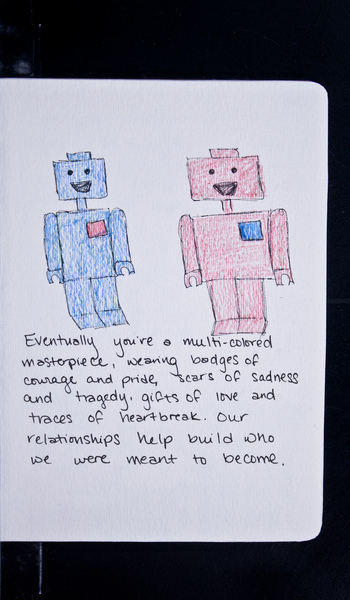 Eventually you're a multi-colored
masterpiece, wearing badges of
courage and pride, scars of sadness
and tragedy, gifts of love and
traces of heartbreak. Our
relationships help build who
we were meant to become.